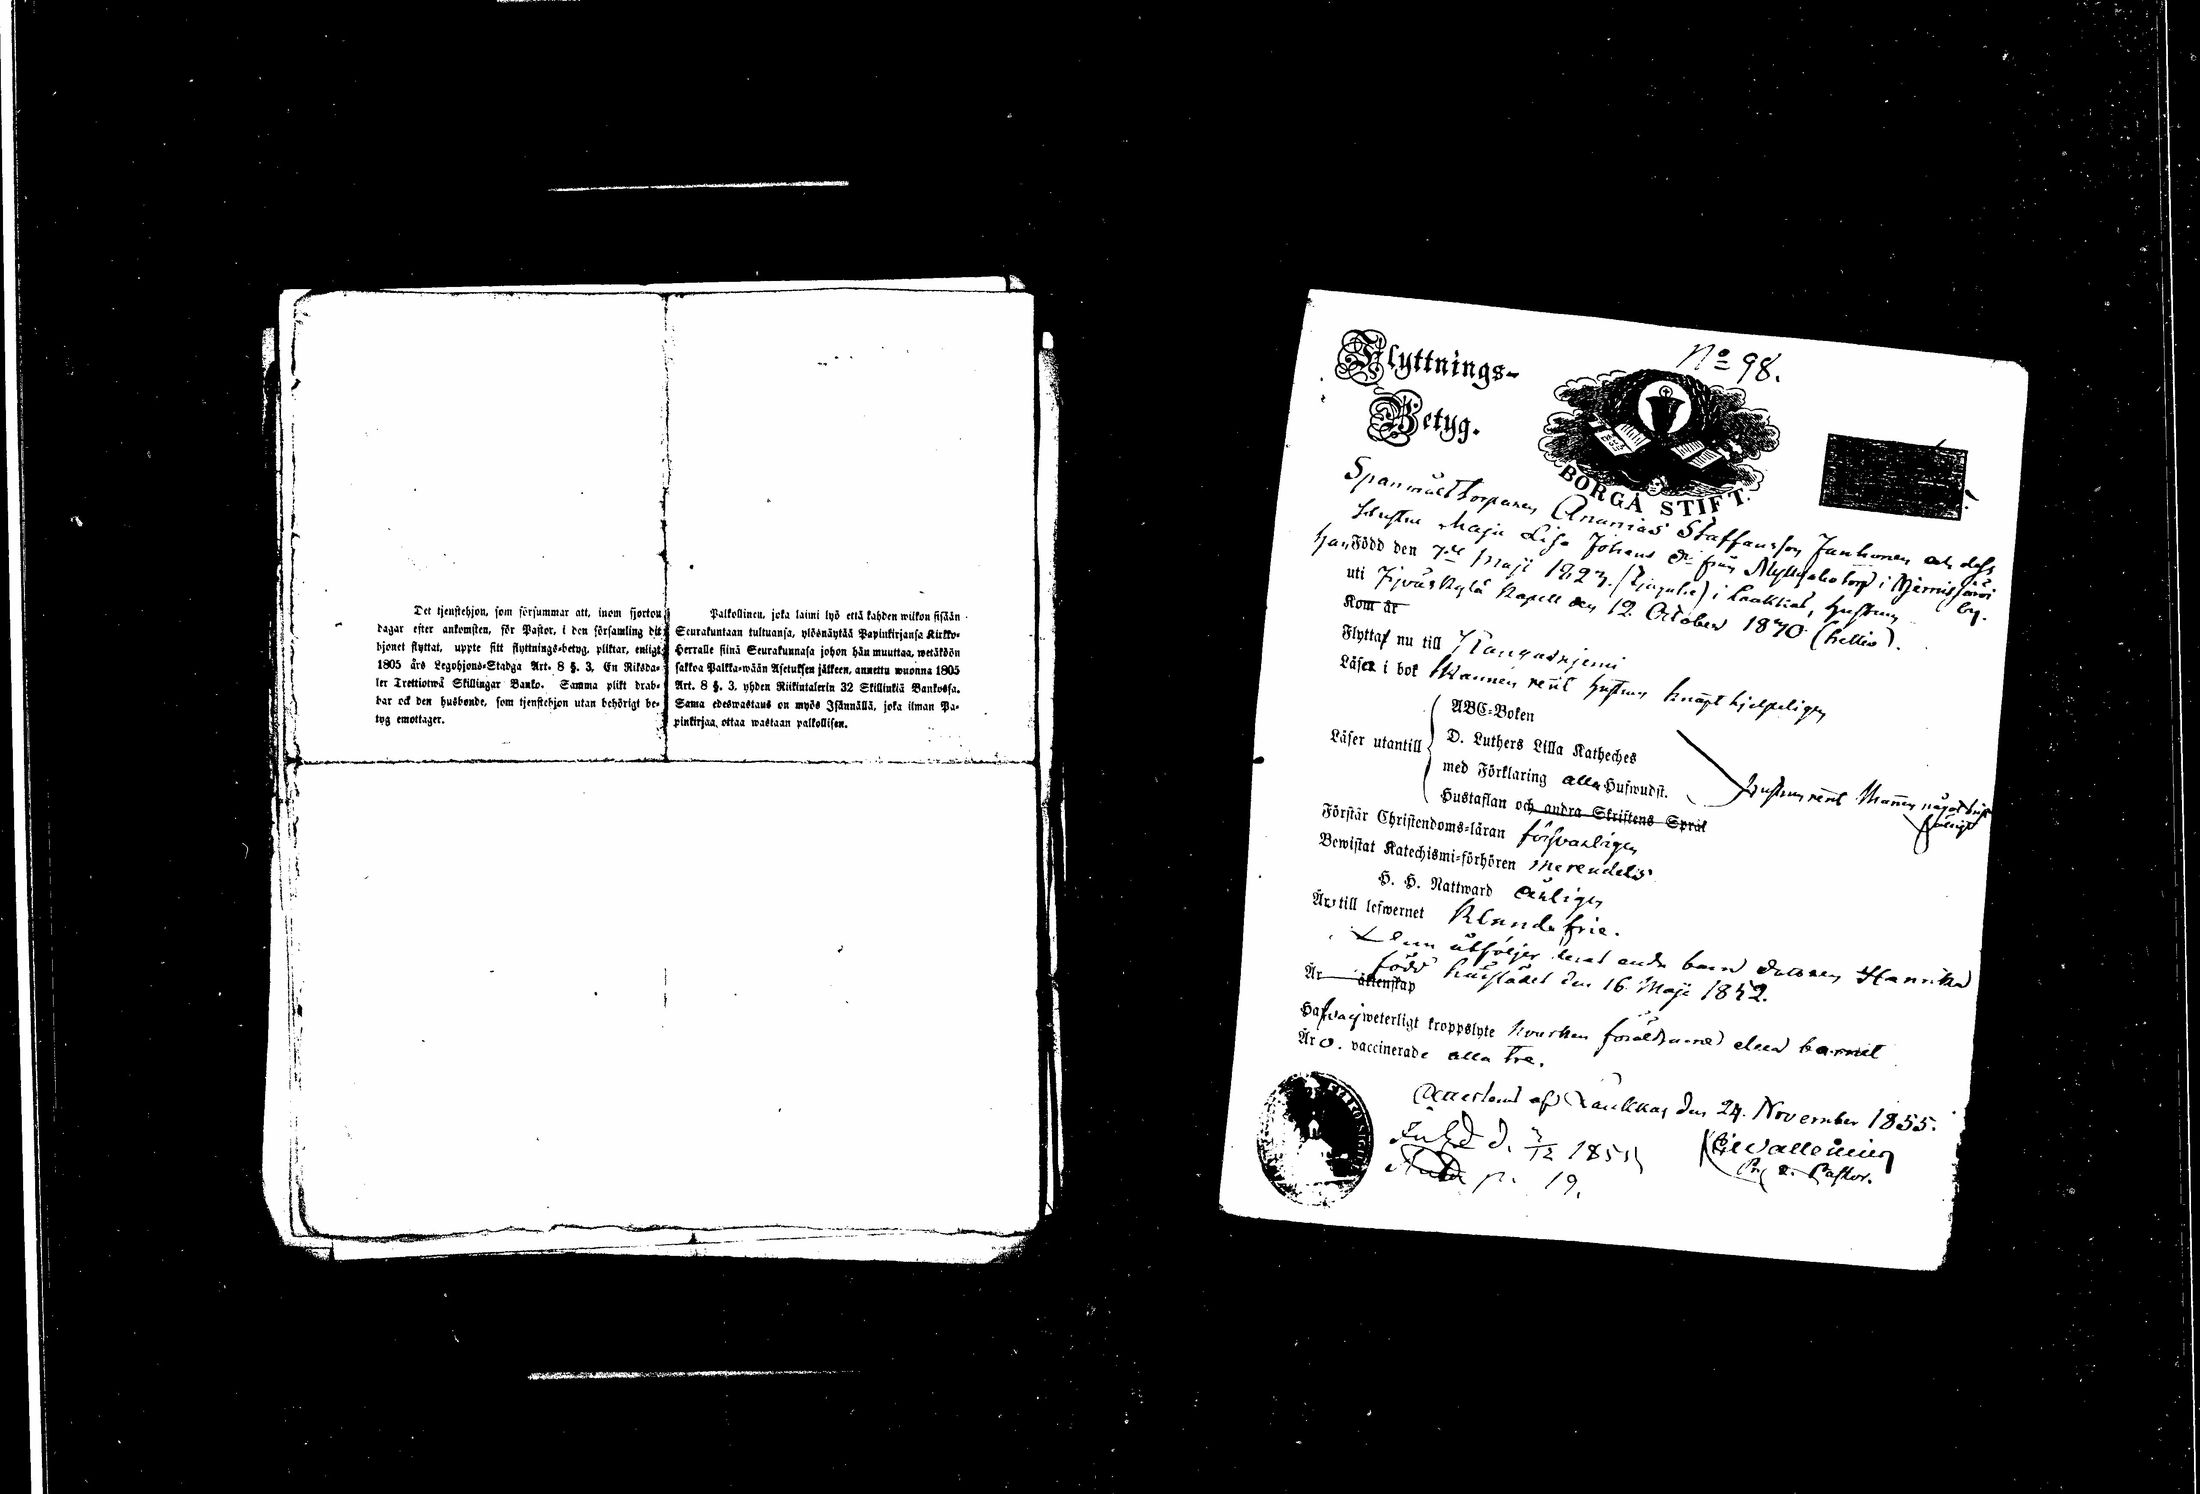 Det tjenstehjon, som försummar att, inom fjorton
dagar efter ankomsten, för Pastor, i den församling dit
hjonet flyttat, uppte sitt flyttnings-betyg, pliktar, enligt
1805 års Legohjons-Stadga Art. 8 §. 3, En Riksda-
ler Trettiotwå Skillingar Banko. Samma plikt drab-
bar ock den husbonde, som tjenstehjon utan behörigt be-
tyg emottager.
Palkollinen, joka laimi lyö että kahden wiikon sisään
Seurakuntaan tultuansa, ylösnäytää Papinkirjansa Kirkko-
Herralle siinä Seurakunnasa johon hän muuttaa, wetäköön
sakkoa Palkka-wään Asetuksen jälkeen, annettu wuonna 1805
Art. 8 §. 3, yhden Riikintalerin 32 Skillinkiä Bankossa.
Sama edeswastaus on myös Isännällä, joka ilman Pa-
pinkirjaa, ottaa wastaan palkollisen.
Flyttnings-
Betyg.
No 98.
BORGÅ STIFT.
Ananias Staffansson Janhonen och dess
Hustru Maja Lisa Johans dr från i
Han Född den 7de Maji 1827. i Laukkas, Hustrun
uti Jyväskylä Kapell den 12 October 1830
Kom år
Flyttar nu till Kangasniemi
Läser i bok Mannen rent Hustrun knapt hjelpeligen
Läser utantill
ABC-Boken
D. Luthers Lilla Katheches
med Förklaring alla Hufwudst.
Hustaflan och andra Skriftens Språk
Hustrun rent Mannen något
Förstår Christendoms-läran försvarligen
Bewistat Katechismi-förhören merendels
H. H. Nattward årligen
Är till lefwernet Klanderfrie.
åtföljer deras barn dottren Hanrika
född den 16 Maji 1852.
Är äktenskap
Haf weterligt kroppslyte hvarken föräldrarne eller barnet
Är o. vaccinerade alla tre.
Attesterat af Laukkas den 24. November 1855.
d. 3/12 1855
p. 19.
v. Pastor.